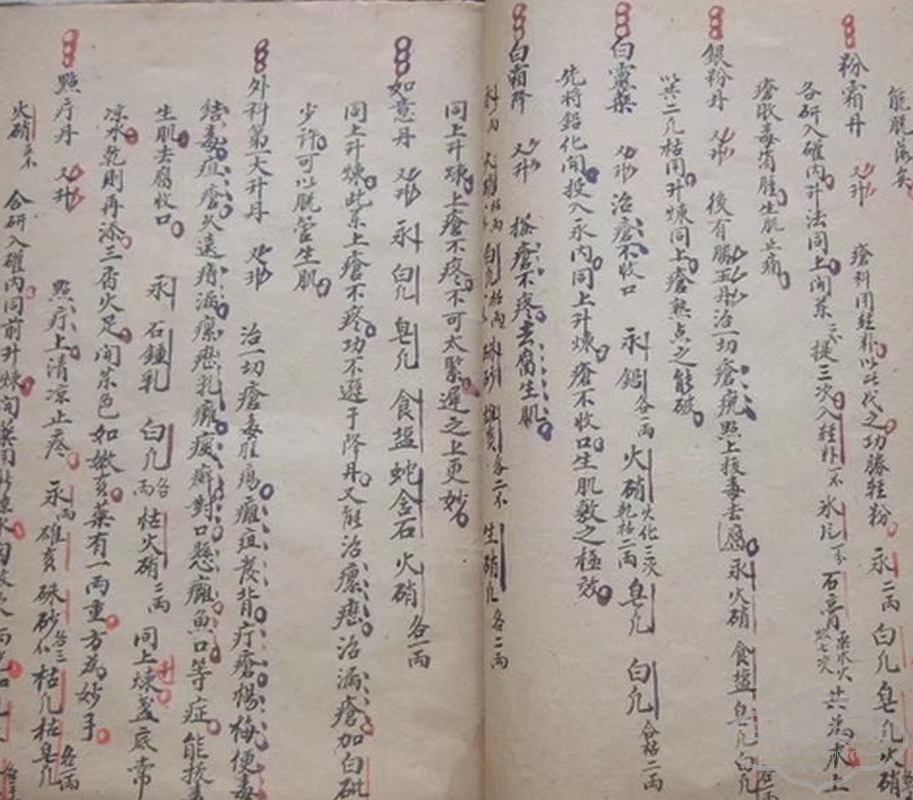 能脫落矣
粉霜丹 又升 瘡科用輕粉以此代之功勝輕粉 汞二両 白凡 皂凡 火硝
各研入確內升法同上開茶 提三次入輕粉 氷片 石膏 共為末上
瘡敗毒消腫生肌止痛
銀粉丹 又升 後有臈五丹治一切瘡疣點上拔毒去腐 汞 火硝 食盐 皂凡 白凡
以共二凡枯同升煉同上瘡熟点之能破
白靈藥 又升 治瘡不收口 汞 鉛各一両 火硝火化三次乾枯二両 皂凡 白凡合枯二両
先將鉛化開投入汞內同上升煉瘡不收口生肌敷之極效
白霜降 又升 搽瘡不疼去腐生肌
白凡 硃砂 生硝 各二両
同上升煉上瘡不疼不可太緊遲之上更妙
如意丹 又升 汞 白凡 皂凡 食盐 蛇含石 火硝各一両
同上升煉此藥上瘡不疼功不遲于降丹又能治瘰癧治漏瘡加白砒
少許可以脫管生肌
外科第一大升丹 又升 治一切瘡毒腫瘍癰疽發背疔瘡楊梅便毒
結毒疽瘡久遠痔漏瘰癧乳癰瘋癬對口懸癰魚口等症能拔毒
生肌去腐收口 汞 石鍾乳 白凡各両 枯火硝三両 同上煉盞底常
凉水乾則再添三香火足開茶色如嫩黃藥有一両重方為妙手
點疔丹 又升 點疔上清凉止疼 汞両 雄黃 硃砂 枯凡 枯皂凡各一両
火硝 合研入確內同前升煉開藥用